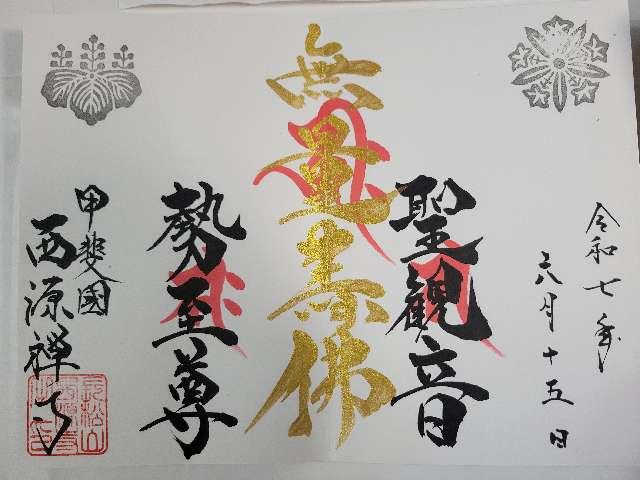 令和七年
六月十五日
聖観音
無量寿佛
勢至尊
甲斐国
西源禅寺